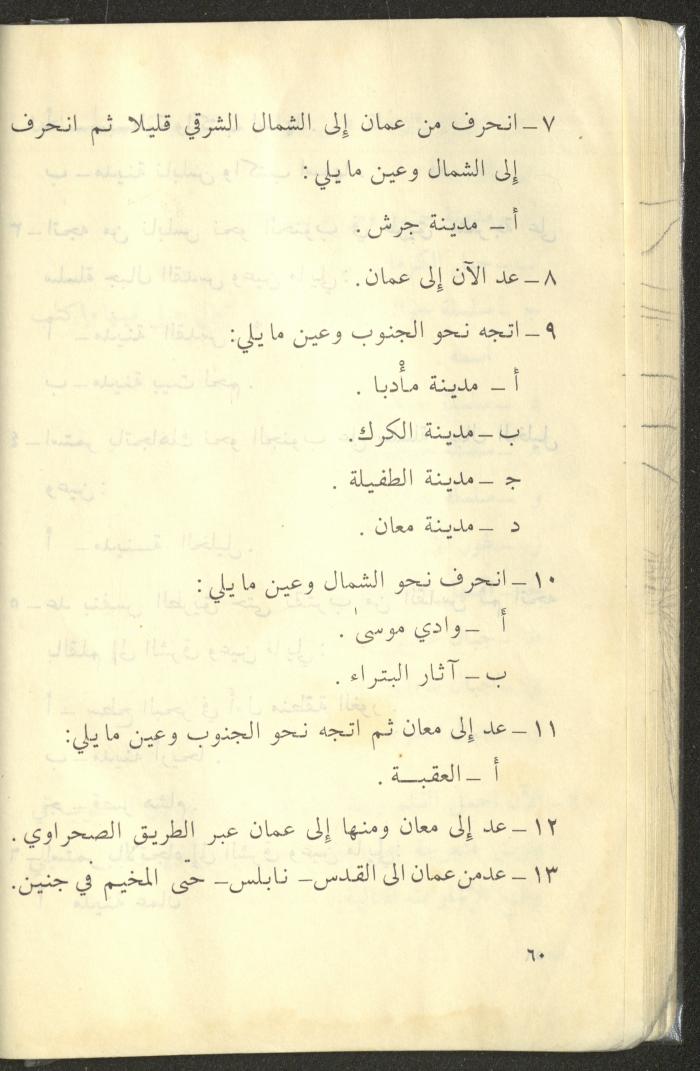 ٧ ــ انحرف من عمان إلى الشمال الشرقي قليلا ثم انحرف
إلى الشمال وعين ما يلي :
أ ــ مدينة جرش .
٨ ــ عد الآن إلى عمان .
٩ ــ اتجه نحو الجنوب وعين ما يلي:
أ ــ مدينة مأْدبا .
ب ــ مدينة الكرك .
جـ ــ مدينة الطفيلة .
د ــ مدينة معان .
١٠ ــ انحرف نحو الشمال وعين ما يلي :
أ ــ وادي موسى .
ب ــ آثار البتراء .
١١ ــ عد إلى معان ثم اتجه نحو الجنوب وعين ما يلي:
أ ــ العقبــة .
١٢ ــ عد إلى معان ومنها إلى عمان عبر الطريق الصحراوي .
١٣ ــ عد من عمان الى القدس ــ نابلس ــ حتى المخيم في جنين.
٦٠